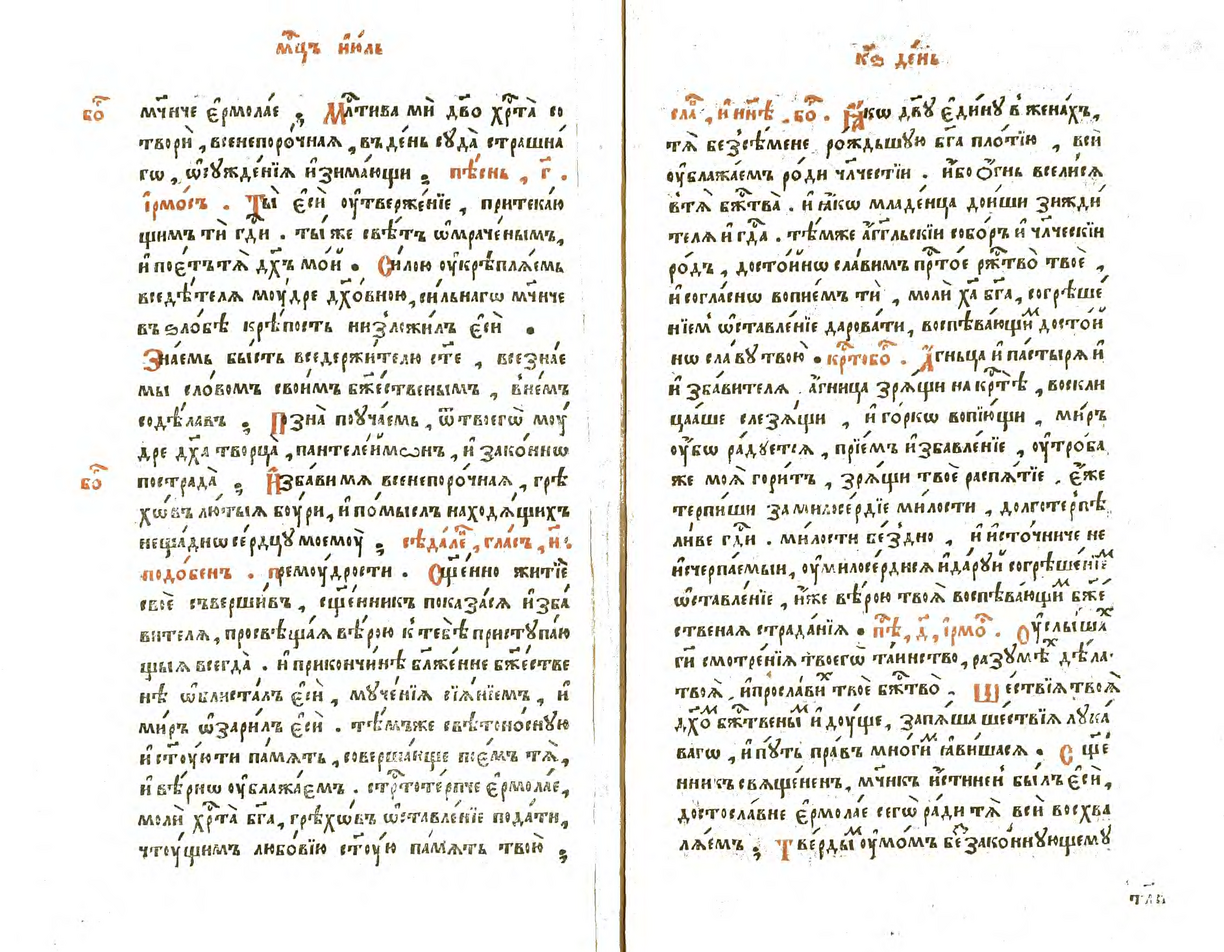 мцъ июль
бо
мч҃нче єрмолае ; Мл҃тива мѝ дв҃о хрⷭ҇та̀ со
творѝ , всенепоро́чная , въ де́нь сꙋда̀ страшна
гѡ , ѡ҆сꙋжде́нїѧ и҆зима́ющи ; пѣ́снь , г҃ .
і҆рмо́съ . Ты̀ є҆сѝ ѹ҆тверже́нїе , притекаю
щимъ тѝ гдⷭ҇и . ты́ же свѣ́тъ ѡ҆мраче́нымъ ,
и҆ пое́тъ тѧ̀ дх҃ъ мо́й . Си́лою ѹ҆крѣплѧ́емь
вседѣ́телѧ моу́дре дх҃о́вною , си́льнагѡ мч҃нче
въ ѕло́бѣ крѣ́пость низложи́лъ є҆сѝ .
Зна́емь бы́сть вседержи́телю ст҃е , всезна́е
мы сло́вомъ свои́мъ бж҃е́ственымъ , в не́мъ
содѣ́лавъ ; Позна̀ поуча́емь , ѿ твоегѡ̀ моу́
дре дх҃а творца̀ , пантелеи́мѡнъ , и҆ зако́ннѡ
бо
пострада̀ ; И҆зба́ви мѧ всенепоро́чная , грѣ
хѡ́въ лю́тыѧ боу́ри , и҆ по́мыслъ находѧ́щихъ
неща́днѡ се́рдцꙋ моемоу̀ ; сѣда́ле , гла́съ , и҃ .
подо́бенъ . премоу́дрости . Сщ҃е́нно житїѐ
своѐ съверши́въ , сщ҃е́нникъ показа́сѧ и҆зба
ви́телѧ , просвѣща́ѧ вѣ́рою к тебѣ̀ приступаю
щыѧ всегда̀ . и҆ при кончи́нѣ бл҃же́нне бж҃е́стве
нѣ ѡ҆блиста́лъ є҆сѝ , муче́нїѧ сїѧ́нїемъ , и҆
ми́ръ ѡ҆зари́лъ є҆сѝ . тѣ́мъже свѣтоно́сную
и҆ ст҃ую ти па́мѧть , соверша́юще пое́мъ тѧ̀ ,
и҆ вѣ́рнѡ ѹ҆блажа́емъ . стрⷭ҇тоте́рпче є҆рмола́е ,
молѝ хрⷭ҇та̀ бг҃а , грѣхѡ́въ ѡ҆ставле́нїе пода́ти ,
чтоу́щимъ любо́вїю ст҃оу́ю па́мѧть твою̀ ;
к҃ѕ де́нь
сла , и҆ нн҃ѣ . бо . Ꙗ҆́кѡ дв҃у є҆ди́ну в жена́хъ ,
тѧ̀ без сѣ́мене ро́ждьшую бг҃а пло́тїю , всѝ
ѹ҆блажа́емъ ро́ди чл҃честїи . и҆́бо ѻ҆́гнь всели́сѧ
в тѧ̀ бж҃тва̀ . и҆ ꙗ҆́кѡ младе́нца дои́ши зижди
телѧ и҆ гдⷭ҇а . тѣ́мже а҆́гг҃льскїи собо́ръ и҆ чл҃ческїи
ро́дъ , досто́йнѡ сла́вимъ прⷭ҇то́е ржⷭ҇тво̀ твоѐ ,
и҆ согла́снѡ вопїе́мъ тѝ , молѝ ха̀ бг҃а , согрѣше
нїемъ ѡ҆ставле́нїе дарова́ти , воспѣва́ющимъ досто́й
нѡ сла́ву твою̀ . крⷭ҇тобо . А҆́гньца и҆ па́стырѧ и҆
и҆зба́вителѧ . а҆́гница зрѧ́щи на крⷭ҇тѣ , воскли
ца́аше слезѧ́щи , и҆ го́рькѡ вопїю́щи , ми́ръ
ѹ҆́бѡ ра́дуетсѧ , прїе́мъ и҆збавле́нїе , ѹ҆тро́ба
же моѧ̀ гори́тъ , зрѧ́щи твоѐ распѧ́тїе . є҆́же
терпи́ши за милосе́рдїе ми́лости , долготерпѣ
ли́ве гдⷭ҇и . ми́лости бе́здно , и҆ и҆сто́чниче не
и҆счерпа́емыи , ѹ҆милосе́рдисѧ и҆ да́руй согрѣше́нїемъ
ѡ҆ставле́нїе , и҆́же вѣ́рою твоѧ̀ воспѣва́ющимъ бж҃е
ственая страда́нїѧ . пѣ , д҃ , і҆рмо . Ѹ҆слы́шахъ
гдⷭ҇и смотре́нїѧ твоегѡ̀ та́инство , разумѣ́хъ дѣла̀
твоѧ̀ , и҆ просла́вихъ твоѐ бжⷭ҇тво̀ . Ше́ствїѧ твоѧ̀
дх҃омъ бж҃твены́мъ и҆доу́ще , запѧ́ша ше́ствїѧ лука́
вагѡ , и҆ пу́ть пра́въ мно́гимъ ꙗ҆ви́шасѧ . Сщ҃е
нникъ свѧще́ненъ , мч҃нкъ и҆́стиненъ бы́лъ є҆сѝ ,
достосла́вне є҆рмола́е сегѡ̀ ра́ди тѧ̀ всѝ восхва
лѧ́емъ ; Тверды́мъ ѹ҆мо́мъ беззако́ннующему